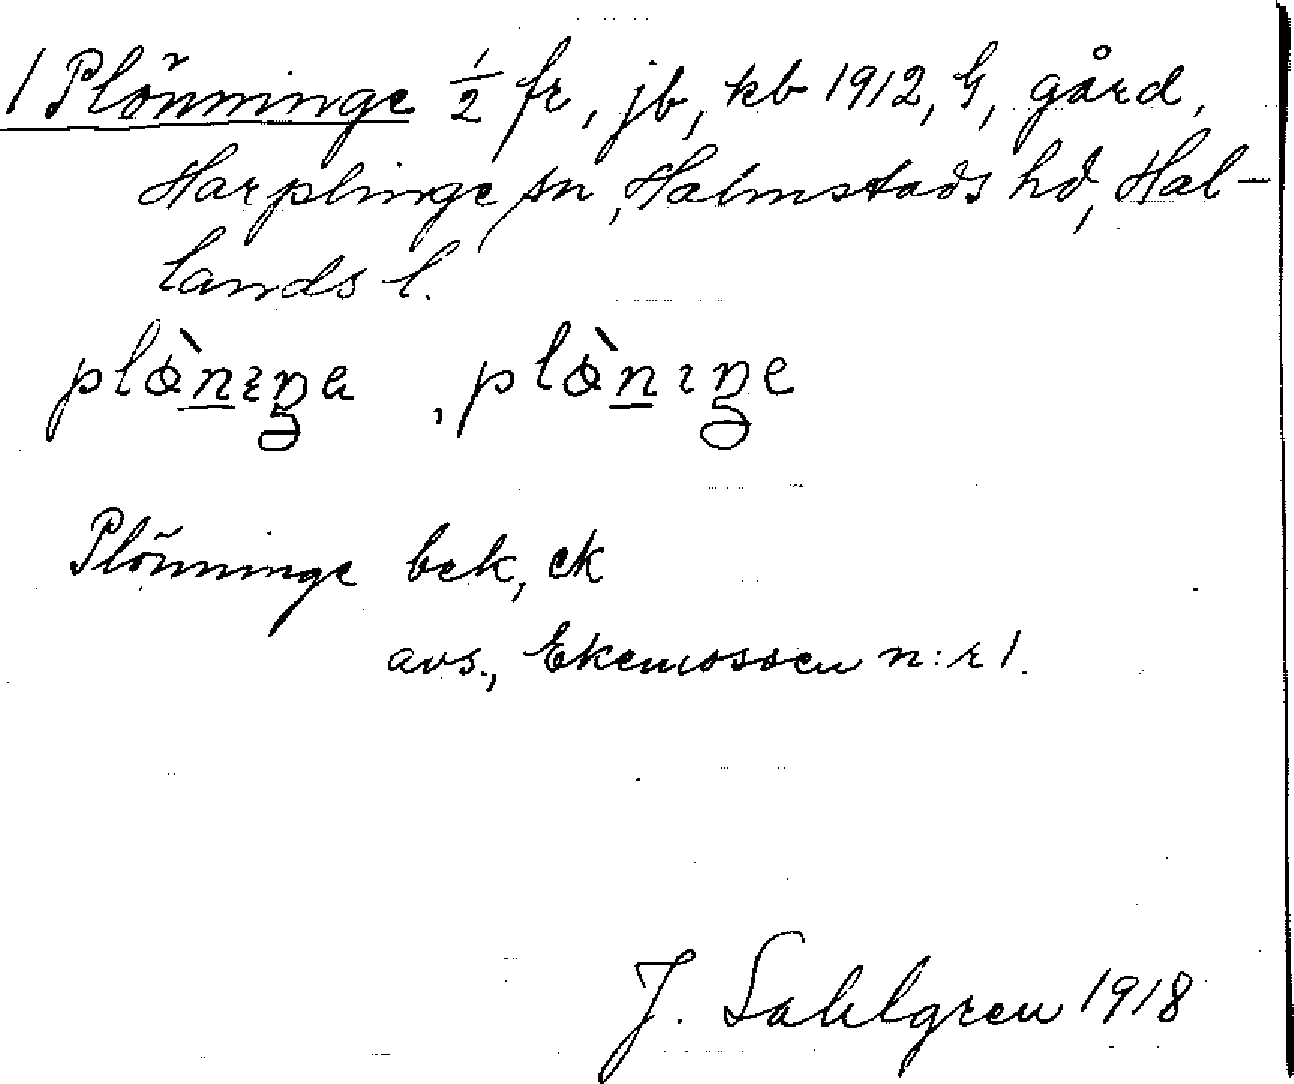 1 Plönninge ½ fr, jb, kb 1912, G, gård,
Harplinge sn, Halmstads hd, Hal-
lands l.
Plönninge bek, ek
avs., Ekemossen n:r 1.
J. Sahlgren 1918